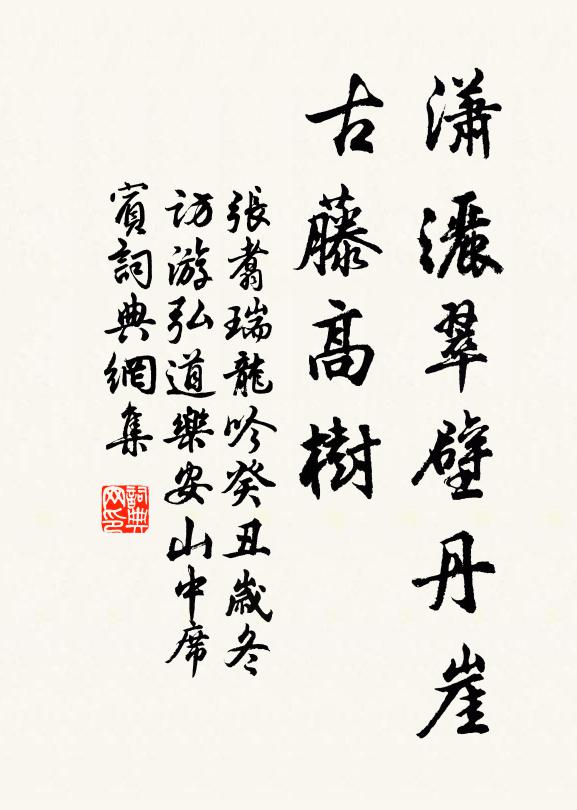 瀟灑翠壁丹崖
古藤高樹
張翥瑞龍吟癸丑歲冬
訪游弘道樂安山中席
賓詞典網集
詞典
网印